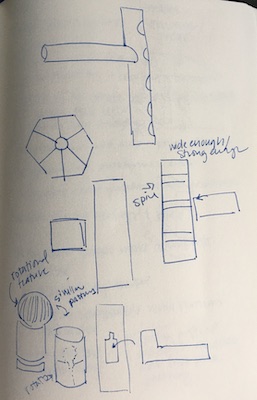 wide enough/
strong enough
spine
rotational
texture
similar
patterns